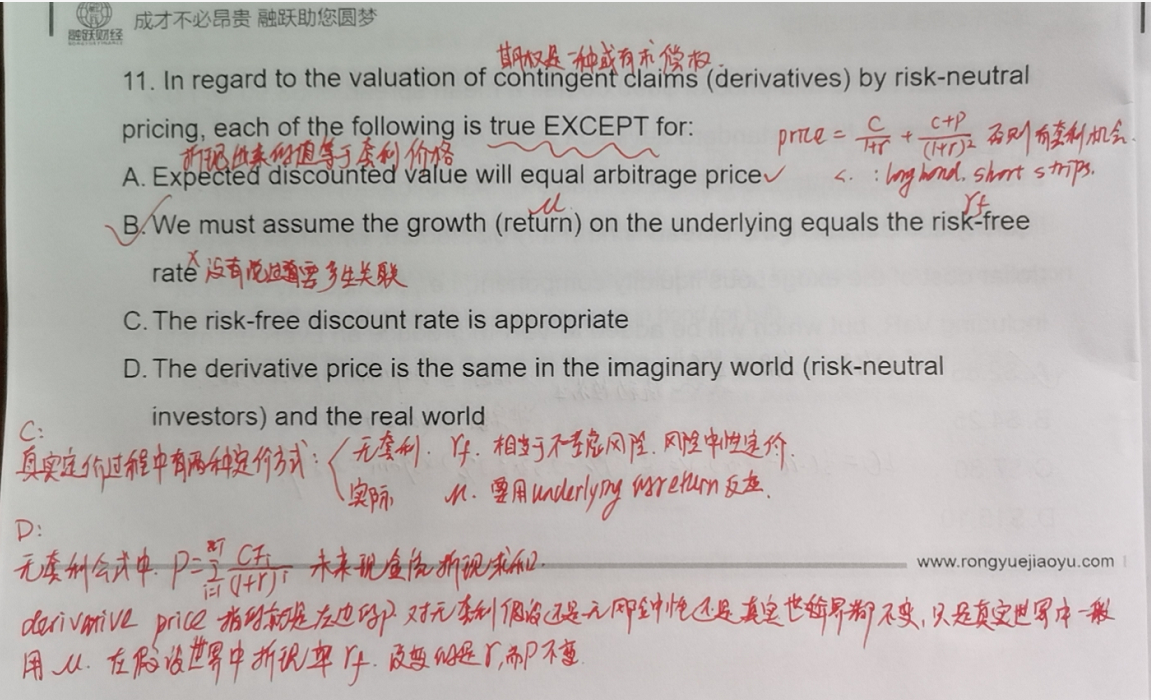 融跃财经
成才不必昂贵 融跃助您圆梦
期权是一种或有求偿权.
11. In regard to the valuation of contingent claims (derivatives) by risk-neutral
pricing, each of the following is true EXCEPT for:
price = C/1+r + C+P/(1+r)² 否则有套利机会.
折现出来的值等于套利价格
A. Expected discounted value will equal arbitrage price✓
< : long bond. short strips.
μ
rf
B. We must assume the growth (return) on the underlying equals the risk-free
rate × 没有说过需要产生关联
C. The risk-free discount rate is appropriate
D. The derivative price is the same in the imaginary world (risk-neutral
investors) and the real world
C:
真实定价过程中有两种定价方式: { 无套利. rf. 相当于不考虑风险. 风险中性定价.
实际 μ. 要用underlying 的return 反应.
D:
无套利公式中. P=Σ i=1 CFi/(1+r)^i 未来现金流折现求和.
www.rongyuejiaoyu.com
derivative price 指的就是左边的P 对无套利假设还是 还是真实世界都不变, 只是真实世界中一般
用 μ. 在假设世界中折现率 rf. 改变的是 r, 而P不变.